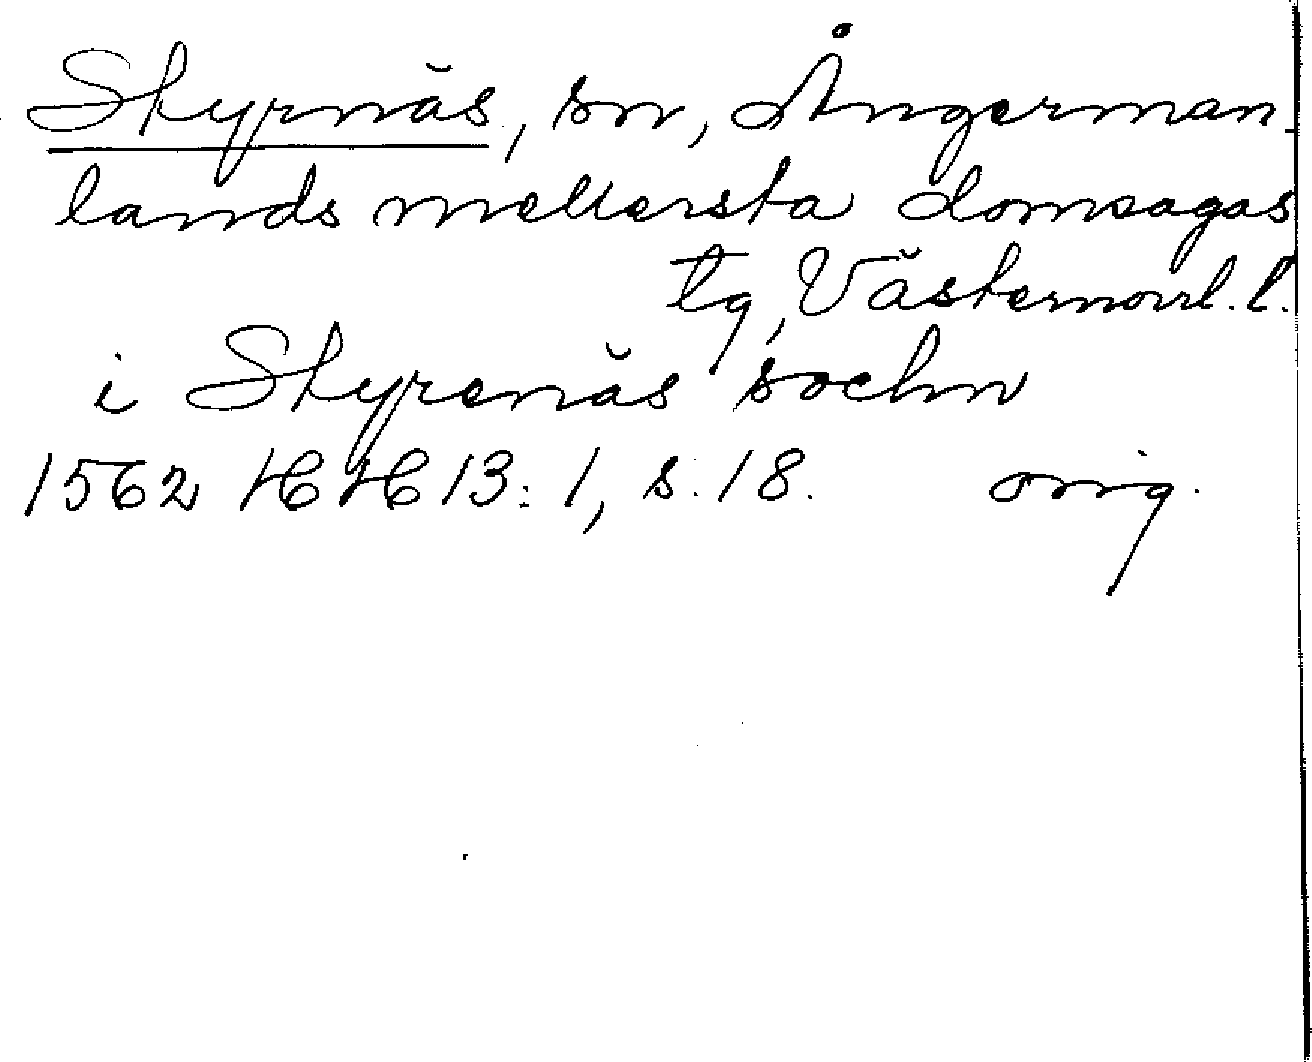 Styrnäs, sn, Ångerman-
lands mellersta domsagas
tg, Västernorrl. l.
i Styrenäs sochn
1562 HH 13:1, s. 18. orig.